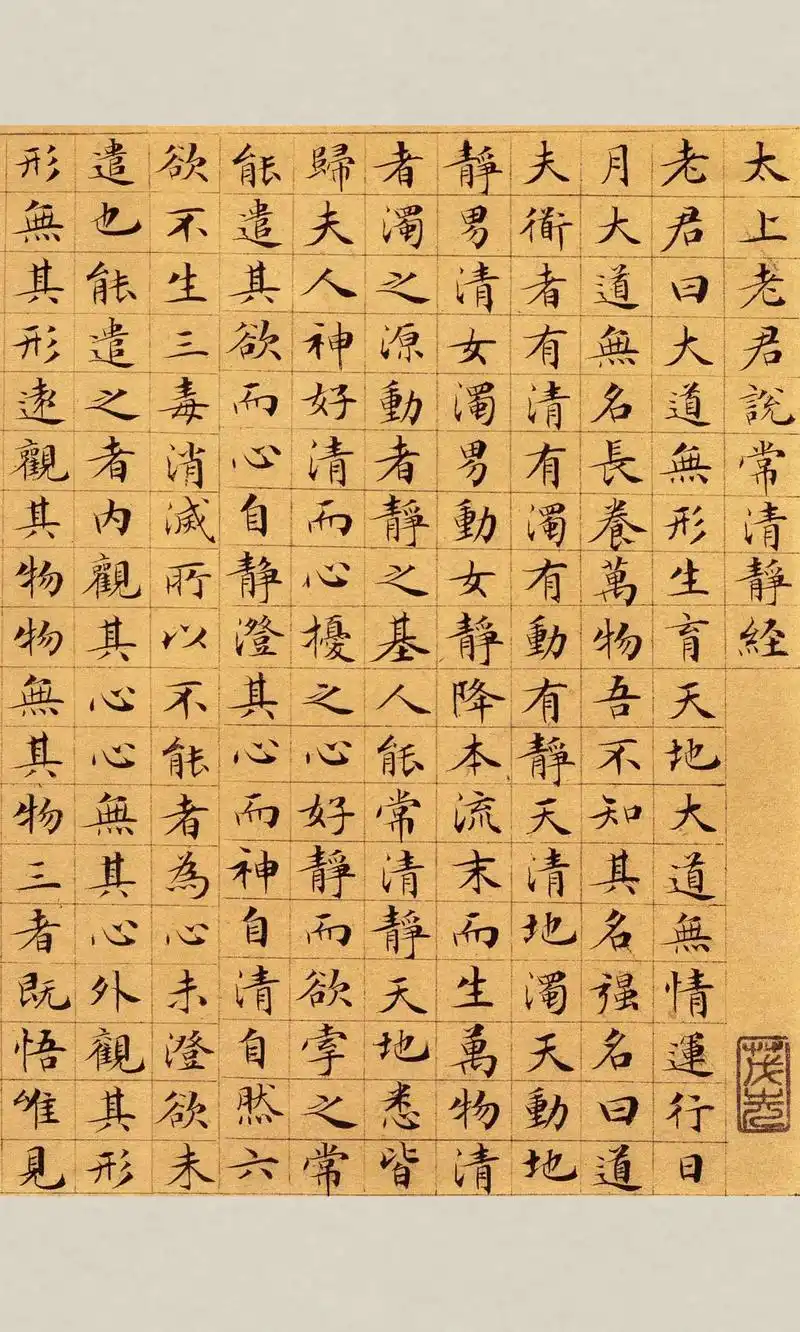 太上老君說常清靜経
老君曰大道無形生育天地大道無情運行日
月大道無名長養萬物吾不知其名强名曰道
夫衜者有清有濁有動有靜天清地濁天動地
靜男清女濁男動女靜降本流末而生萬物清
者濁之源動者靜之基人能常清靜天地悉皆
歸夫人神好清而心擾之心好靜而欲牽之常
能遣其欲而心自静澄其心而神自清自然六
欲不生三毒消滅所以不能者為心未澄欲未
遣也能遣之者内觀其心心無其心外觀其形
形無其形遠觀其物物無其物三者既悟唯見